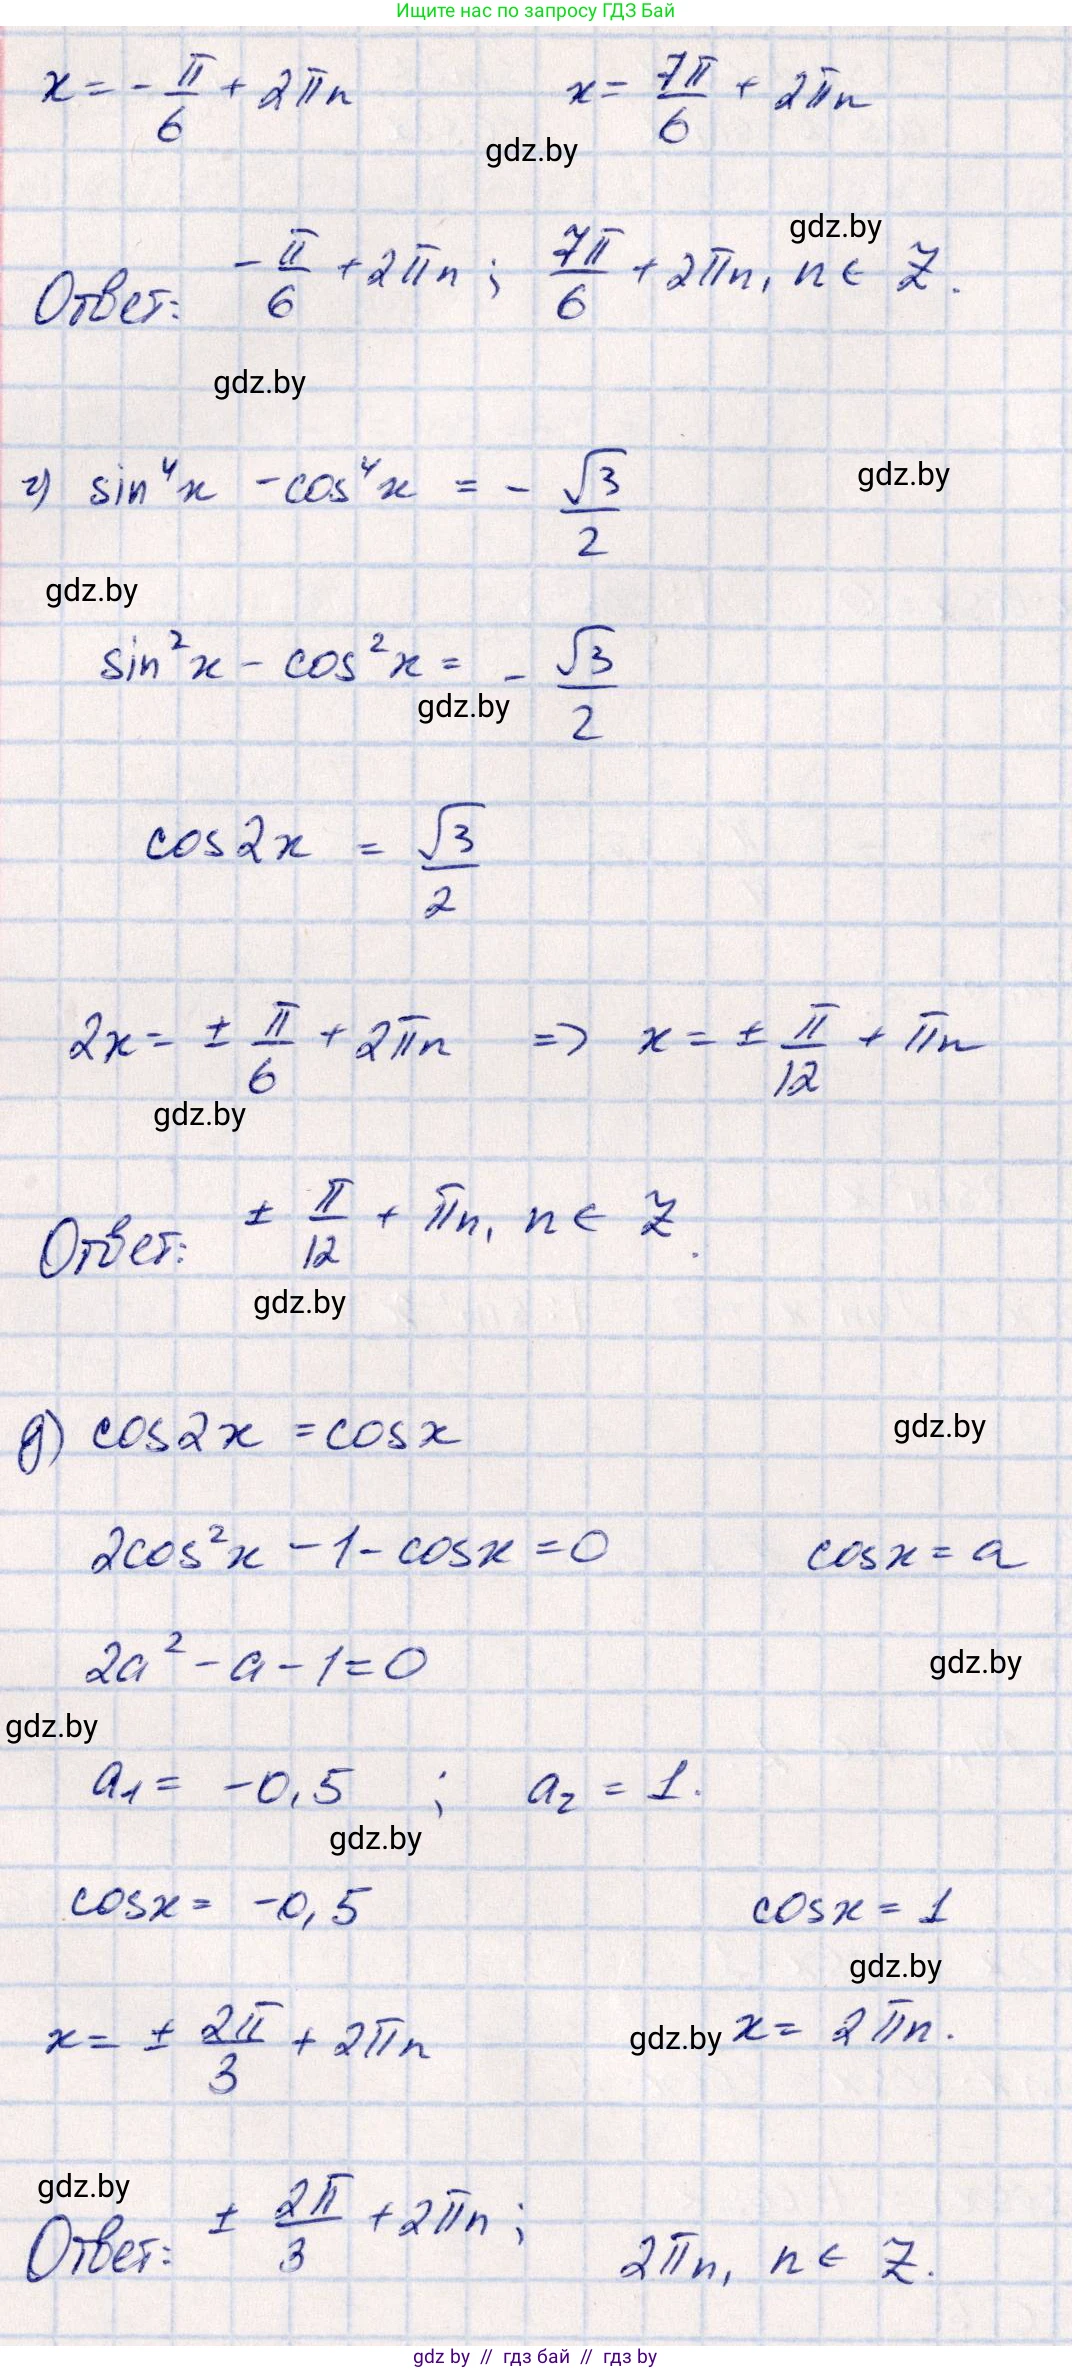 Ищите нас по запросу ГДЗ Бай
x = -π/6 + 2πn    x = 7π/6 + 2πn
gdz.by
gdz.by
Ответ: -π/6 + 2πn; 7π/6 + 2πn, n ∈ Z.
gdz.by
г) sin⁴x - cos⁴x = -√3/2
gdz.by
gdz.by
sin²x - cos²x = -√3/2
gdz.by
cos2x = √3/2
2x = ±π/6 + 2πn => x = ±π/12 + πn
gdz.by
Ответ: ±π/12 + πn, n ∈ Z.
gdz.by
д) cos2x = cosx
gdz.by
2cos²x - 1 - cosx = 0    cosx = a
2a² - a - 1 = 0
gdz.by
gdz.by
a₁ = -0,5 ; a₂ = 1.
gdz.by
cosx = -0,5    cosx = 1
gdz.by
x = ±2π/3 + 2πn    gdz.by x = 2πn.
gdz.by
Ответ: ±2π/3 + 2πn; 2πn, n ∈ Z.
gdz by // гдз бай // гдз by